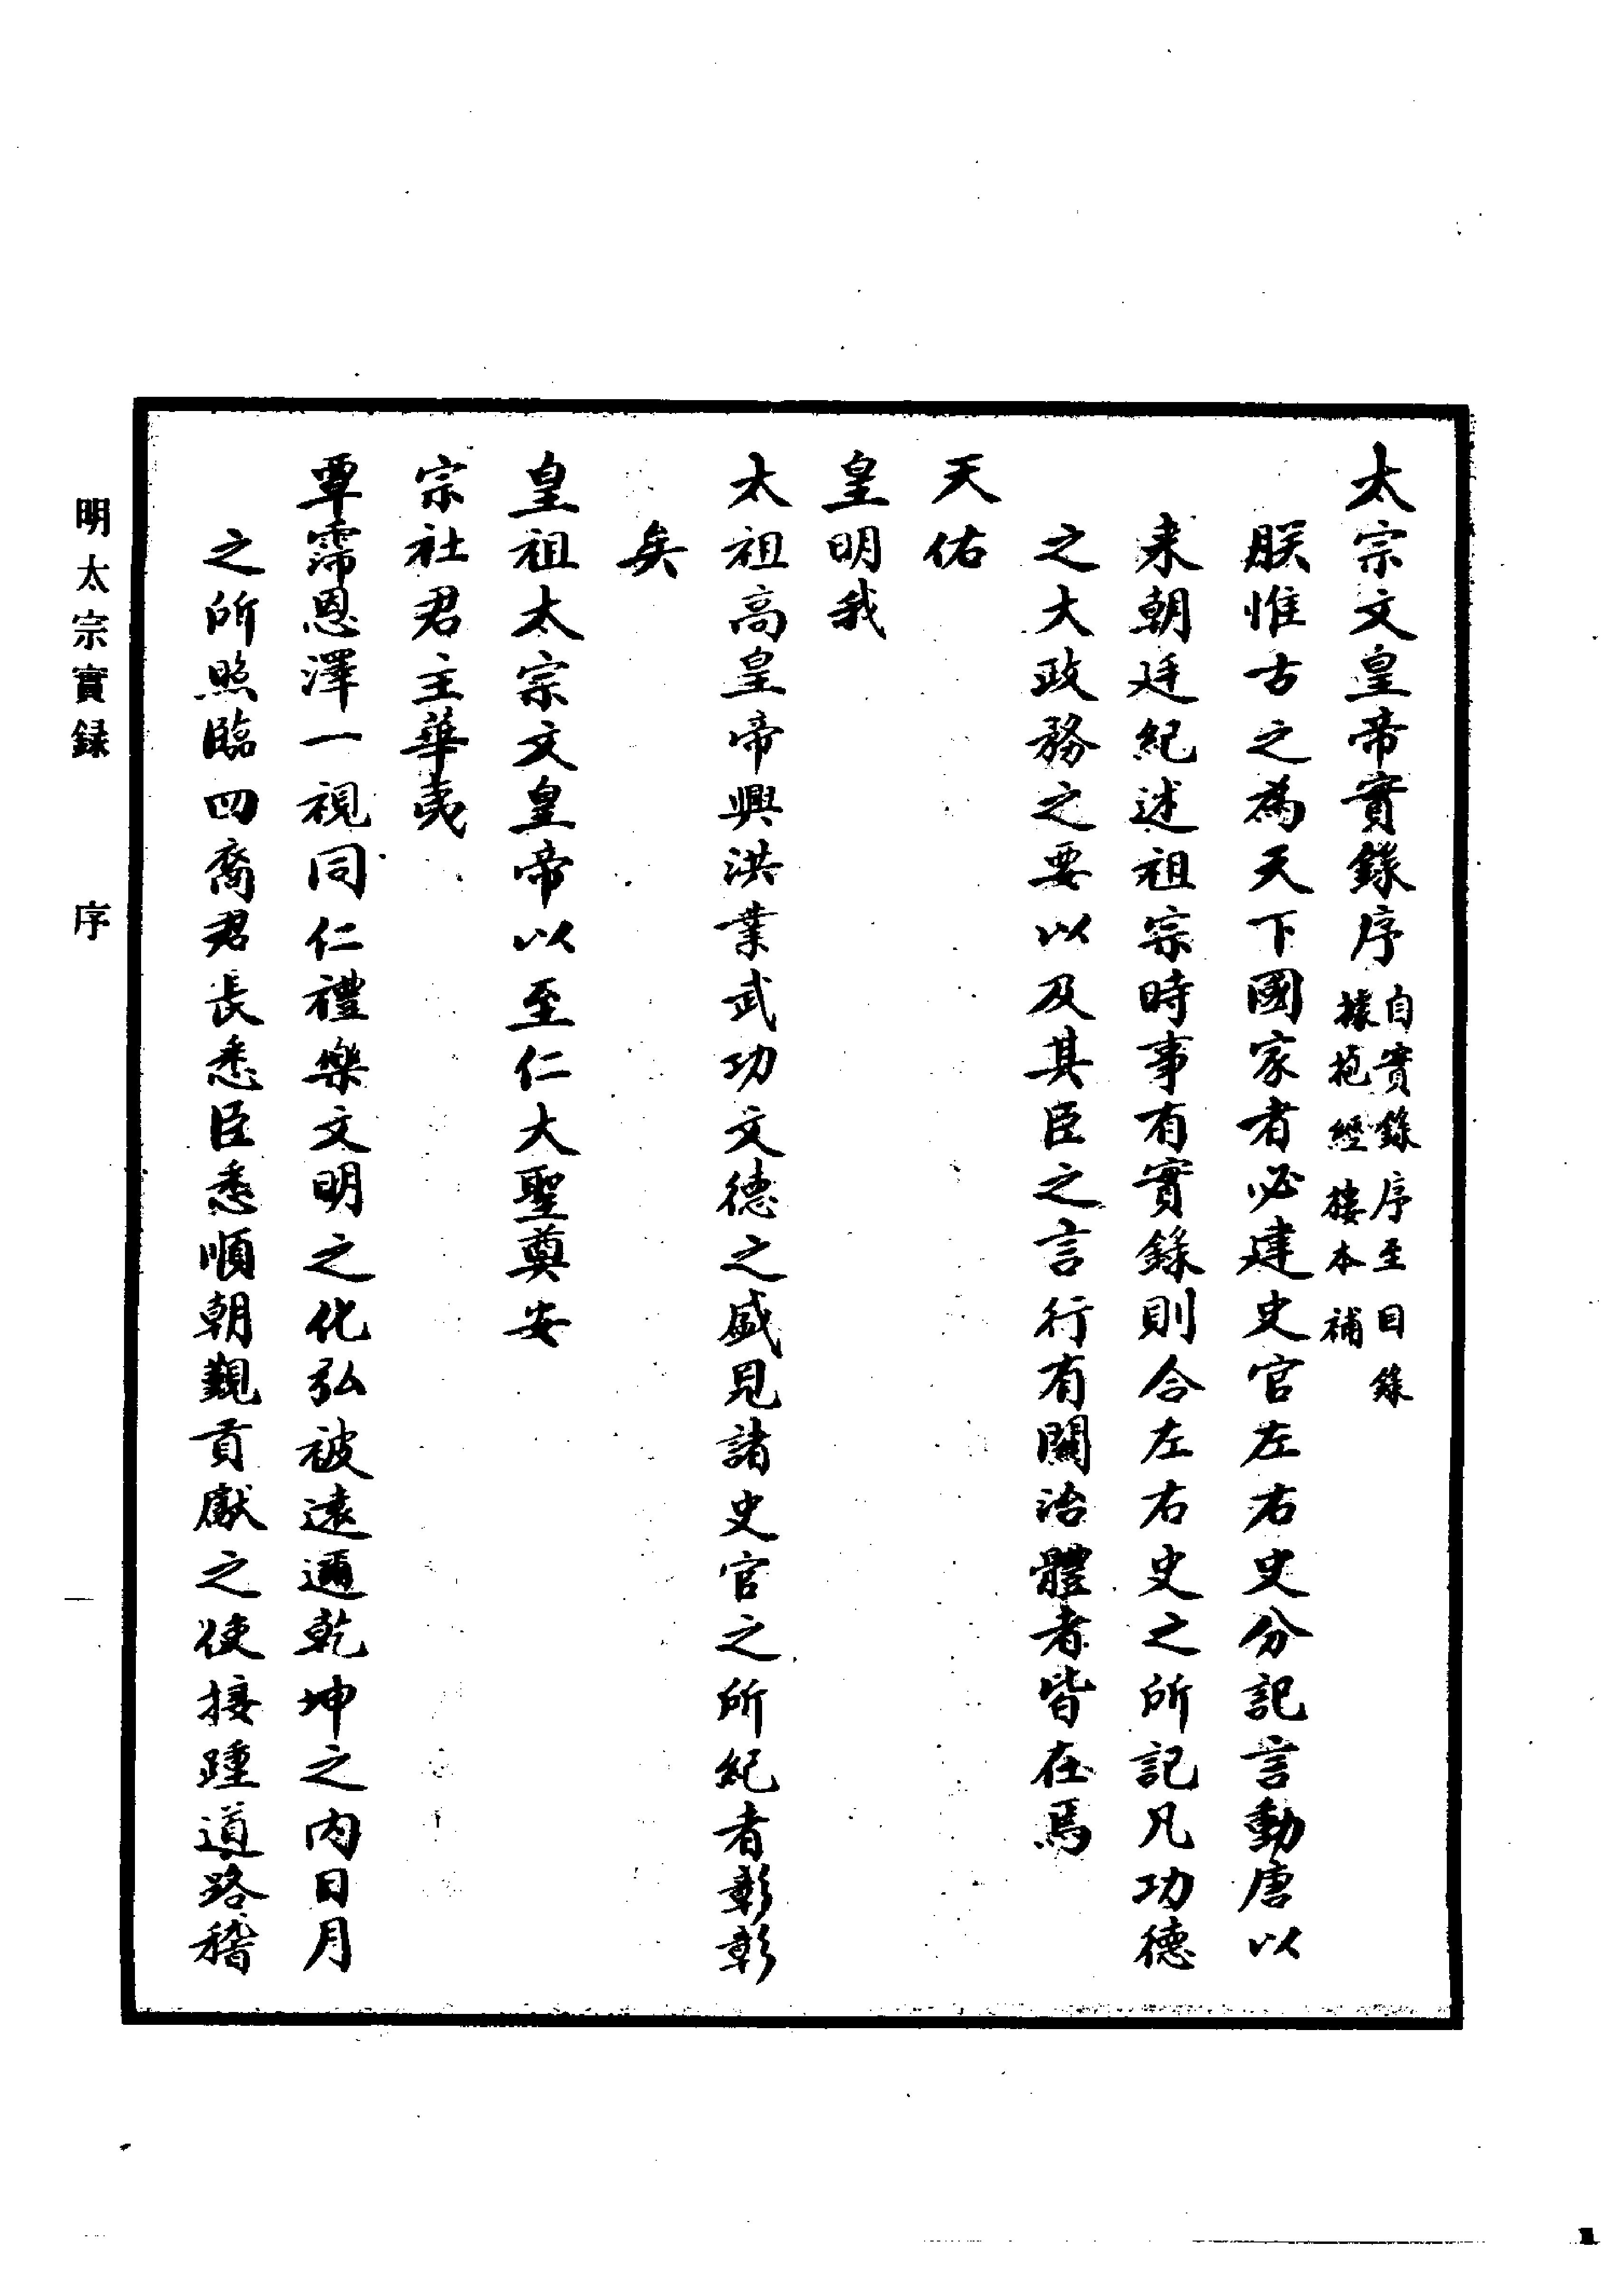 太宗文皇帝實錄序自實錄序至目錄據抱經樓本補
朕惟古之為天下國家者必建史官左右史分記言動唐以
来朝廷紀述祖宗時事有實錄則合左右史之所記凡功德
之大政務之要以及其臣之言行有關治體者皆在焉
天佑
皇明我
太祖高皇帝興洪業武功文德之盛見諸史官之所紀者彰彰
矣
皇祖太宗文皇帝以至仁大聖奠安
宗社君主華夷
覃霈恩澤一視同仁禮樂文明之化弘被遠邇乾坤之内日月
之所照臨四裔君長悉臣悉順朝覲貢獻之使接踵道路稽
明太宗實録 序
一
1